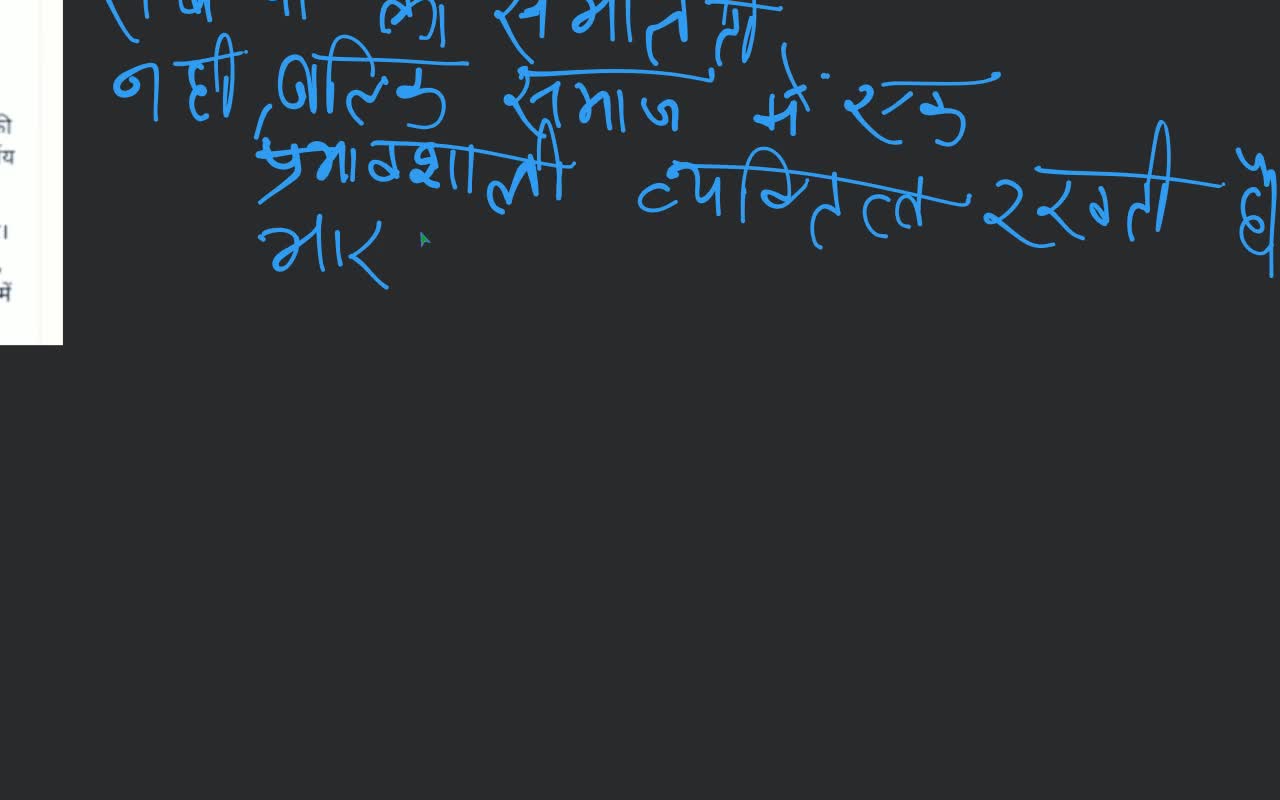 की समानता
नही बल्कि समाज में एक
प्रभावशाली व्यक्तित्व रखती है
भार
की
में